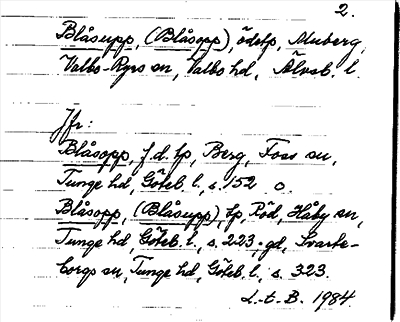 2.
Blåsupp, (Blåsopp), ödetp, Muberg,
Valbo-Ryrs sn, Valbo hd, Älvsb. l.
Jfr:
Blåsopp, f.d. tp, Berg, Foss sn,
Tunge hd, Göteb. l., s. 152 o.
Blåsopp, (Blåsupp), tp, Röd, Håby sn,
Tunge hd, Göteb. l., s. 223. gd, Svarte-
borgs sn, Tunge hd, Göteb. l., s. 323.
L.-t. B. 1984.